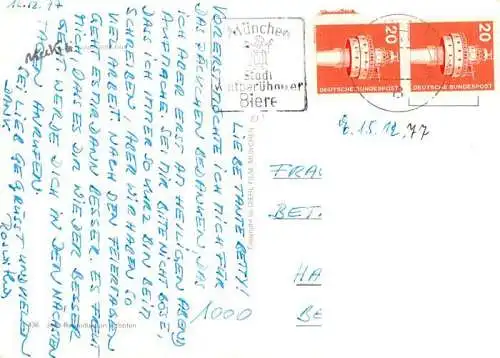 14.12.77
LIEBE TANTE BETTY!
VORERST MÖCHTE ICH MICH FÜR
DAS PÄCKCHEN BEDANKEN, DAS
ICH ABER ERST AM HEILIGEN ABEND
AUFMACHE. SEI MIR BITTE NICHT BÖSE,
DASS ICH IMMER SO KURZ BIN BEIM
SCHREIBEN, ABER WIR HABEN SO
VIEL ARBEIT. NACH DEN FEIERTAGEN
GEHT ES MIR DANN BESSER. ES FREUT
MICH, DASS ES DIR WIEDER BESSER
GEHT. WERDE DICH IN DEN NÄCHSTEN
TAGEN ANRUFEN.
SEI LIEB GEGRÜSST UND VIELEN
DANK
Roswitha
München
Stadt
weltberühmter
Biere
20
DEUTSCHE BUNDESPOST
20
DEUTSCHE BUNDESPOST
15.12.77
FRAU
BET
HA
BE
1000